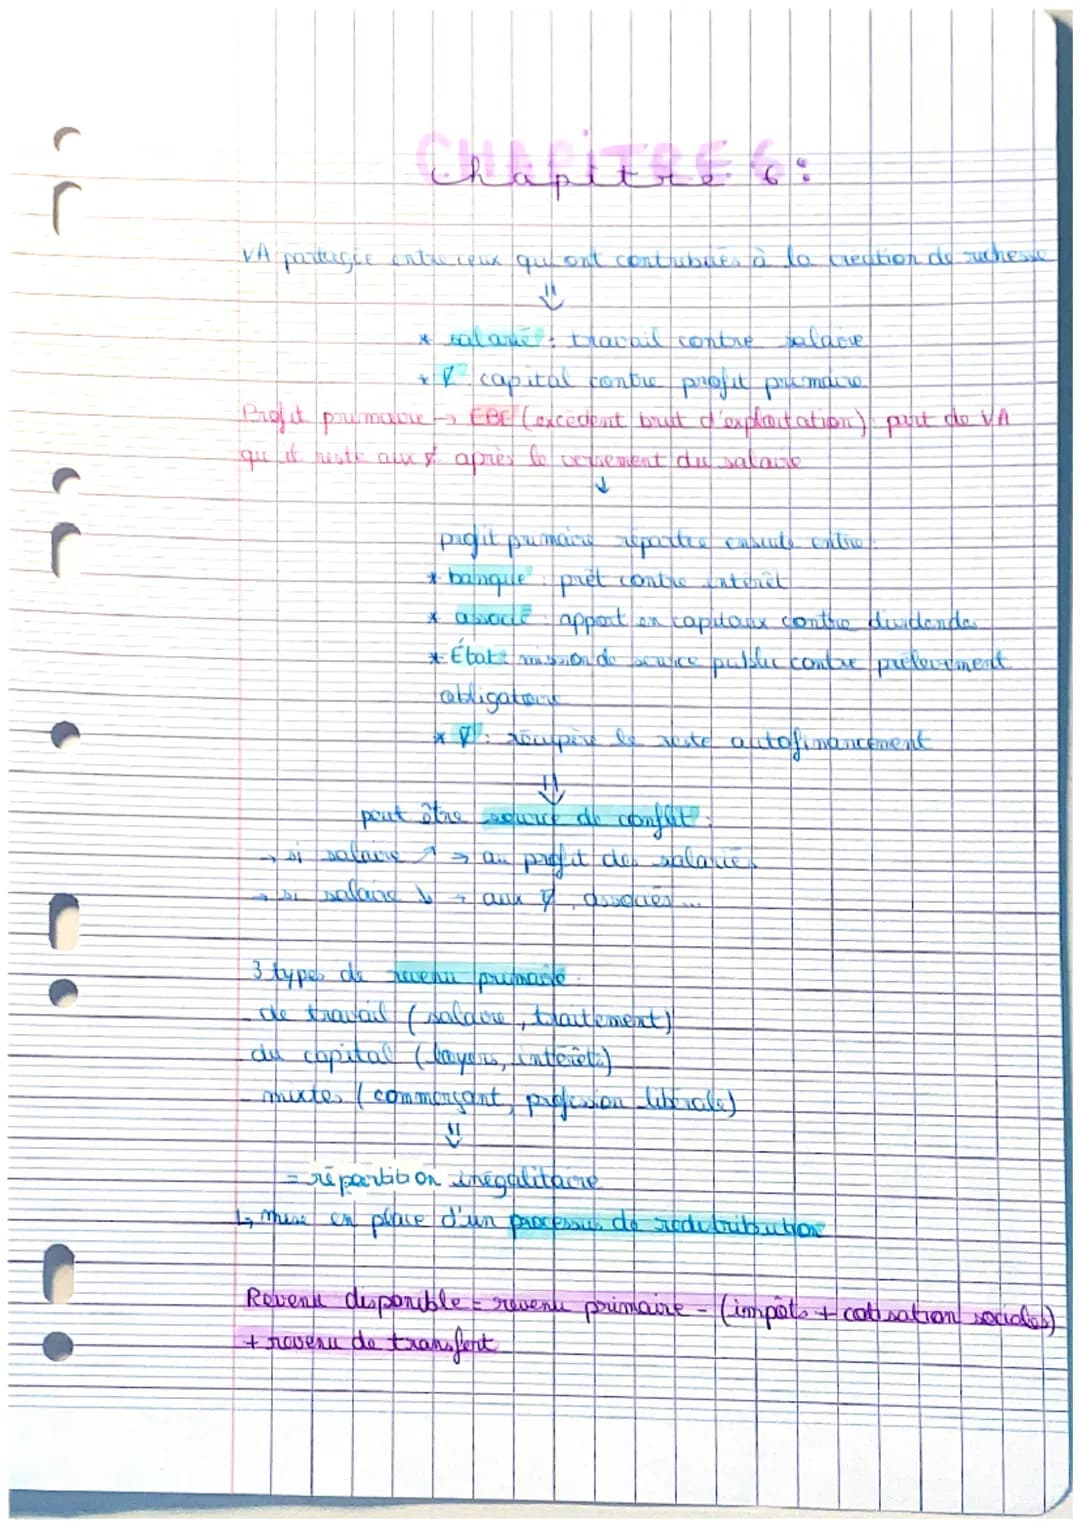 CHAPITRE 6
Chapitre 6 :
VA partagée entre ceux qui ont contribués à la création de richesse
⇓
* salarié : travail contre salaire
* capital contre profit primaire
Profit primaire → EBE (excédent brut d'exploitation) part de VA
qu'il reste aux après le versement du salaire
↓
profit primaire répartie ensuite entre :
* banque : prêt contre intérêt
* associé : apport en capitaux contre dividende
* État : mission de service public contre prélèvement
obligatoire
* : récupère le reste autofinancement
⇓
peut être source de conflit :
→ si salaire ↗ → au profit des salariés
→ si salaire ↘ → aux , associés...
3 types de revenu primaire :
- de travail (salaire, traitement)
- du capital (loyers, intérêts)
- mixtes (commerçant, profession libérale)
⇓
= répartition inégalitaire
↳ mise en place d'un processus de redistribution
Revenu disponible = revenu primaire - (impôts + cotisation sociales)
+ revenu de transfert